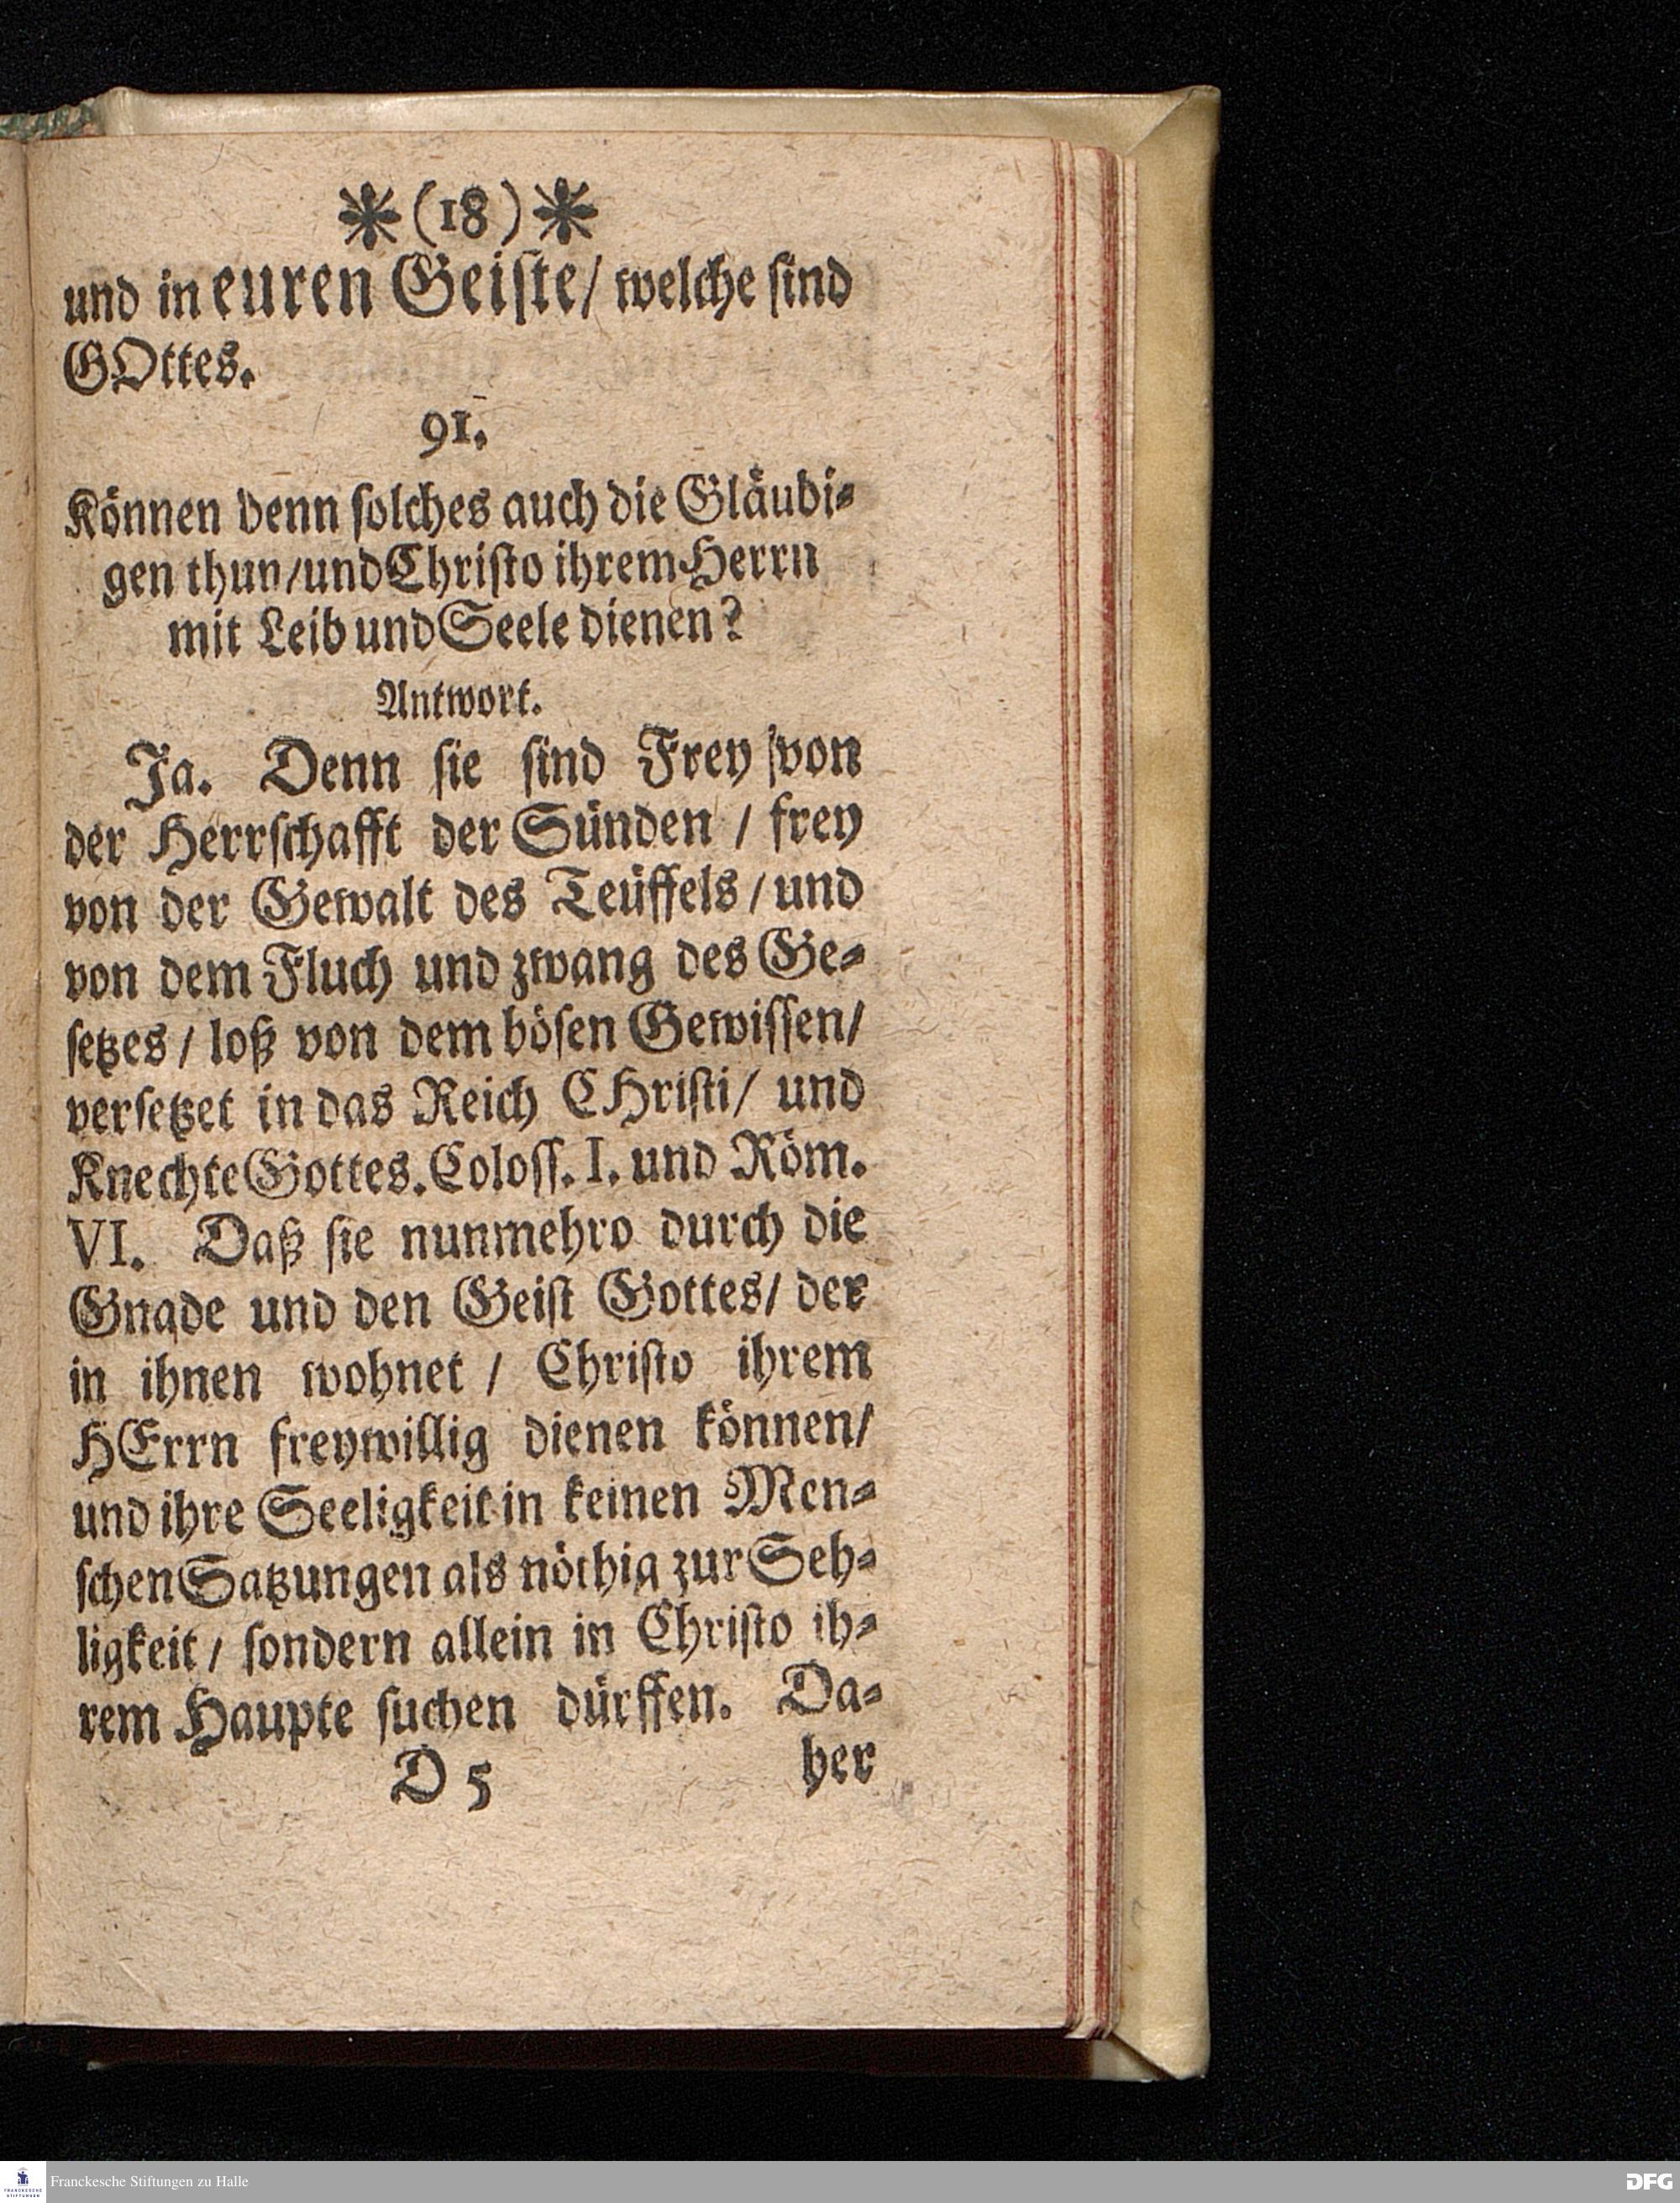 *(18)*
und in euren Geiſte/ welche ſind
GOttes.
91.
Können denn ſolches auch die Gläubi⸗
gen thun/und Chriſto ihrem Herrn
mit Leib und Seele dienen?
Antwort.
Ja. Denn ſie ſind Frey von
der Herrſchafft der Sünden / frey
von der Gewalt des Teüffels / und
von dem Fluch und zwang des Ge⸗
ſetzes / loß von dem böſen Gewiſſen/
verſetzet in das Reich CHriſti/ und
Knechte Gottes. Coloſſ. I. und Röm.
VI. Daß ſie nunmehro durch die
Gnade und den Geiſt Gottes/ der
in ihnen wohnet / Chriſto ihrem
HErrn freywillig dienen können/
und ihre Seeligkeit in keinen Men⸗
ſchen Satzungen als nöthig zur Seh⸗
ligkeit / ſondern allein in Chriſto ih⸗
rem Haupte ſuchen dürffen. Da⸗
D 5 her
Franckesche Stiftungen zu Halle
DFG